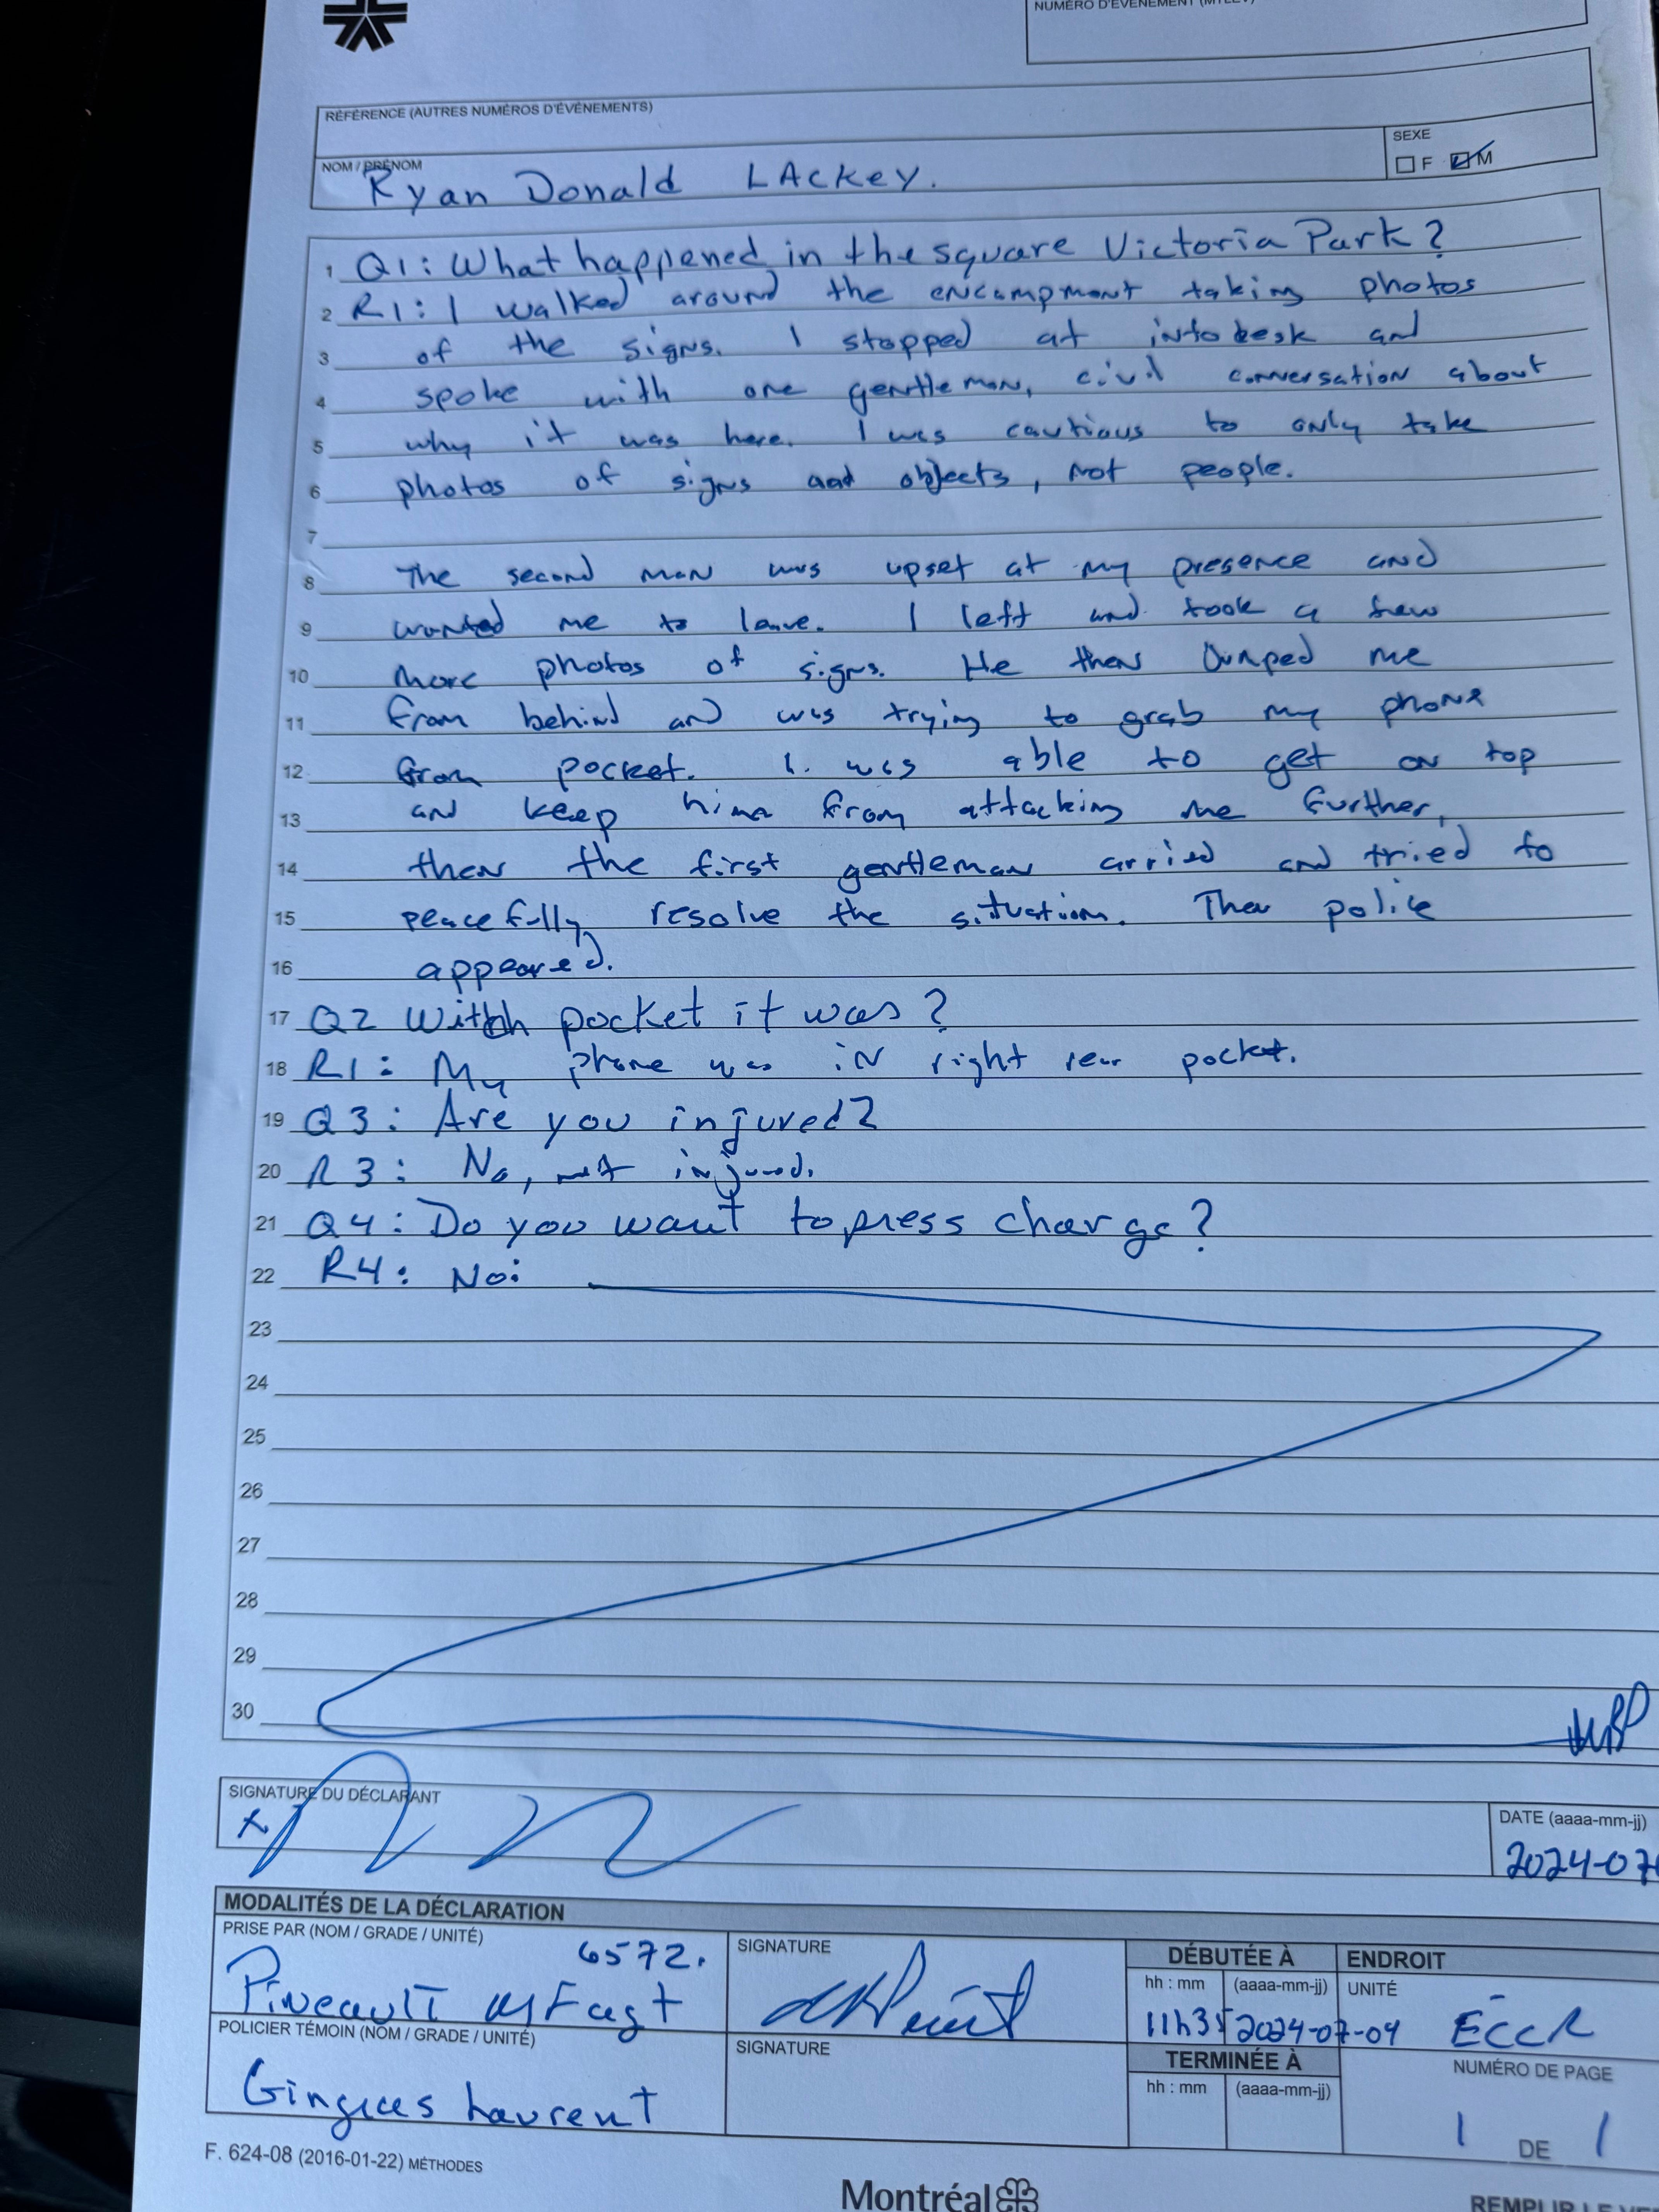 NUMÉRO D'ÉVÉNEMENT
RÉFÉRENCE (AUTRES NUMÉROS D'ÉVÉNEMENTS)
NOM / PRÉNOM
Ryan Donald LAckey.
SEXE
F M
1 Q1: What happened in the square Victoria Park?
2 R1: I walked around the encampment taking photos
3 of the signs. I stopped at info desk and
4 spoke with one gentleman, civil conversation about
5 why it was here. I was cautious to only take
6 photos of signs and objects, not people.
7
8 The second man was upset at my presence and
9 wanted me to leave. I left and took a few
10 more photos of signs. He then Jumped me
11 from behind and was trying to grab my phone
12 from pocket. I was able to get on top
13 and keep him from attacking me further,
14 then the first gentleman arrived and tried to
15 peacefully resolve the situation. Then police
16 appeared.
17 Q2 Witch pocket it was?
18 R1: My phone was in right rear pocket.
19 Q3: Are you injured?
20 R3: No, not injured.
21 Q4: Do you want to press charge?
22 R4: No.
23
24
25
26
27
28
29
30
SIGNATURE DU DÉCLARANT
x
DATE (aaaa-mm-jj)
2024-07
MODALITÉS DE LA DÉCLARATION
PRISE PAR (NOM / GRADE / UNITÉ)
6572.
Pineault
SIGNATURE
DÉBUTÉE À
hh : mm (aaaa-mm-jj)
11h35 2024-07-04
ENDROIT
UNITÉ
ECCR
POLICIER TÉMOIN (NOM / GRADE / UNITÉ)
Laurent
SIGNATURE
TERMINÉE À
hh : mm (aaaa-mm-jj)
NUMÉRO DE PAGE
1 DE 1
F. 624-08 (2016-01-22) MÉTHODES
Montréal
REMPLIR LE